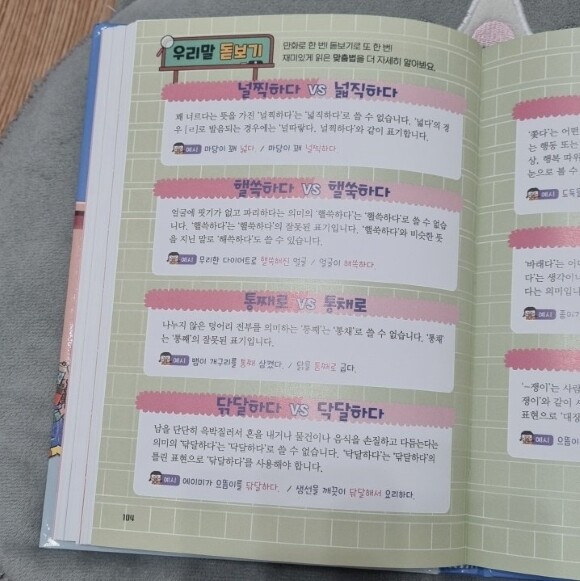 우리말 돋보기
만화로 한 번! 돋보기로 또 한 번!
재미있게 읽은 맞춤법을 더 자세히 알아봐요.
널찍하다 VS 넓찍하다
꽤 너르다는 뜻을 가진 '널찍하다'는 '넓찍하다'로 쓸 수 없습니다. '넓다'의 경
우 [ㄹ]로 발음되는 경우에는 '널따랗다, 널찍하다'와 같이 표기합니다.
예시 마당이 꽤 넓다. / 마당이 꽤 널찍하다.
핼쑥하다 VS 핼쓱하다
얼굴에 핏기가 없고 파리하다는 의미의 '핼쑥하다'는 '핼쓱하다'로 쓸 수 없습
니다. '핼쓱하다'는 '핼쑥하다'의 잘못된 표기입니다. '핼쑥하다'와 비슷한 뜻
을 지닌 말로 '해쓱하다'도 쓸 수 있습니다.
예시 무리한 다이어트로 핼쑥해진 얼굴 / 얼굴이 해쓱하다.
통째로 VS 통채로
나누지 않은 덩어리 전부를 의미하는 '통째'는 '통채'로 쓸 수 없습니다. '통채'
는 '통째'의 잘못된 표기입니다.
예시 뱀이 개구리를 통째 삼켰다. / 닭을 통째로 굽다.
닦달하다 VS 닥달하다
남을 단단히 윽박질러서 혼을 내거나 물건이나 음식을 손질하고 다듬는다는
의미의 '닦달하다'는 '닥달하다'로 쓸 수 없습니다. '닥달하다'는 '닦달하다'의
틀린 표현으로 '닦달하다'를 사용해야 합니다.
예시 메이미가 으뜸이를 닦달하다. / 생선을 깨끗이 닦달해서 요리하다.
104
'꽃다'는 어떤
는 행동 또는
상, 행복 따위
눈으로 볼 수
예시 도둑
'바래다'는
다'는 생각이
다는 의미입니
예시
'-쟁이'는 사람
쟁이'와 같이
표현으로 '대장
예시 으뜸이